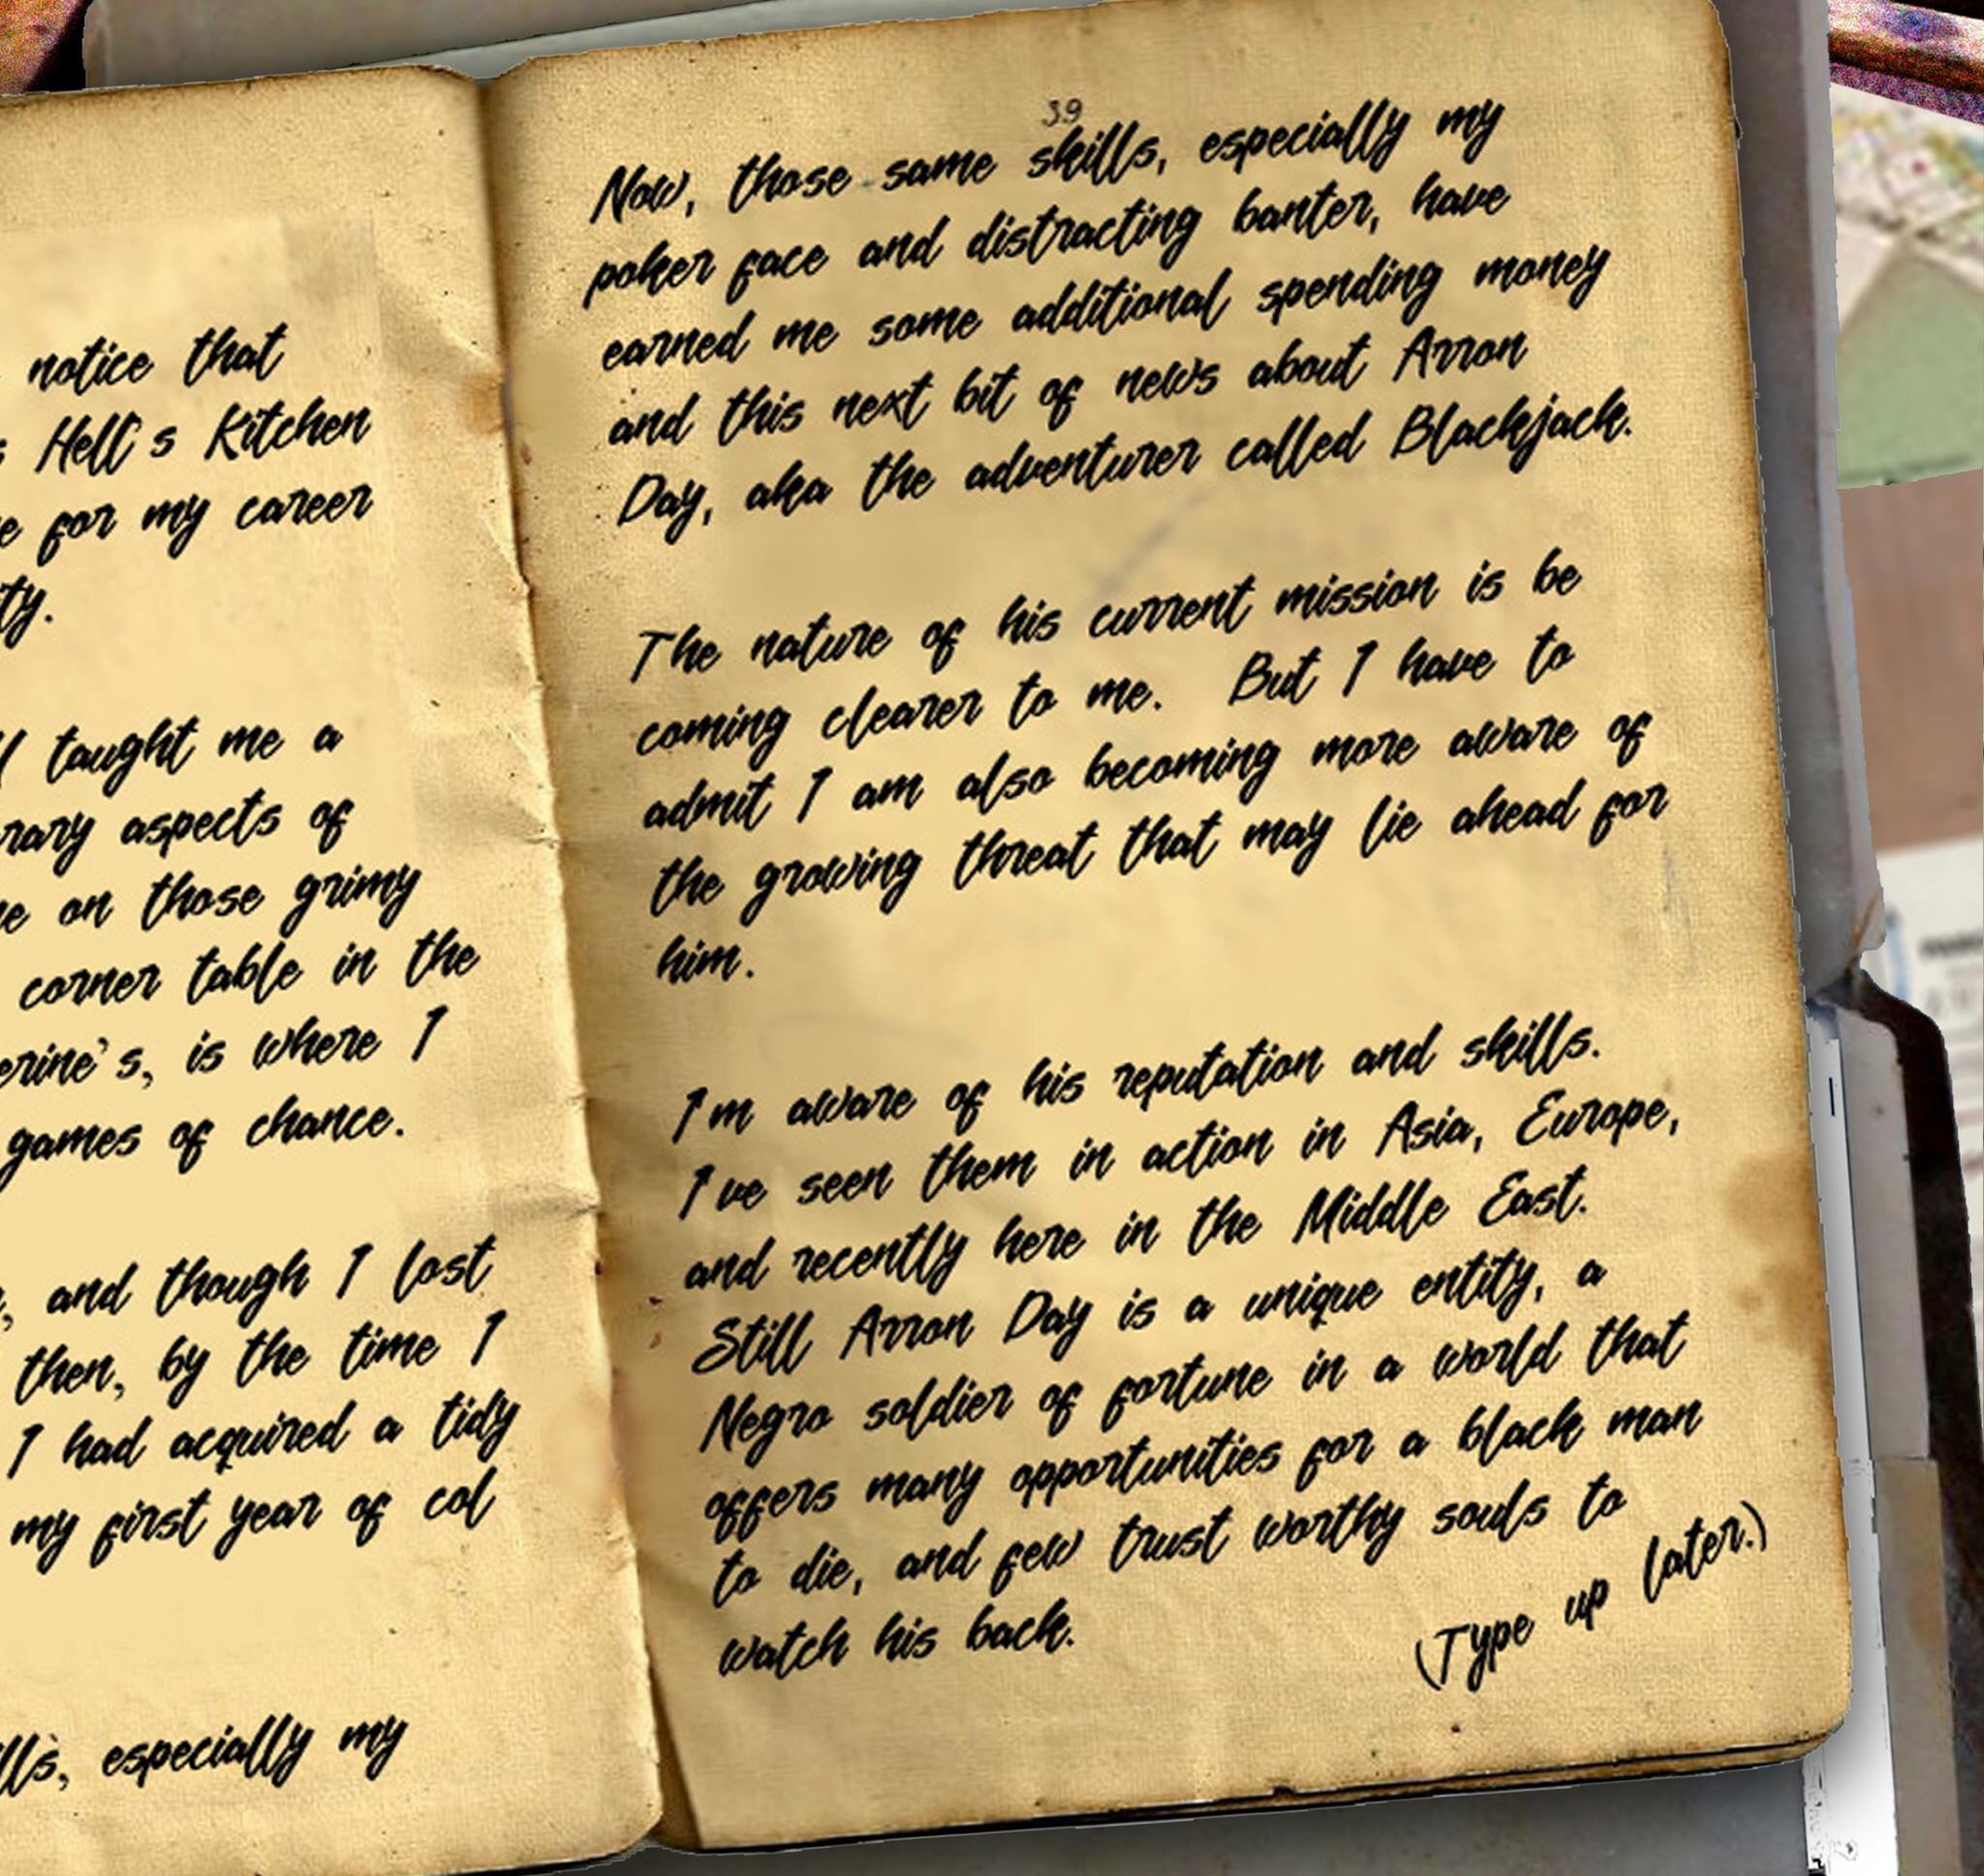 notice that
Hell's Kitchen
for my career
taught me a
aspects of
on those grimy
corner table in the
is where I
games of chance.
and though I lost
then, by the time I
I had acquired a tidy
my first year of col
especially my
39
Now, those same skills, especially my
poker face and distracting banter, have
earned me some additional spending money
and this next bit of news about Arron
Day, aka the adventurer called Blackjack.
The nature of his current mission is be
coming clearer to me. But I have to
admit I am also becoming more aware of
the growing threat that may lie ahead for
him.
I'm aware of his reputation and skills.
I've seen them in action in Asia, Europe,
and recently here in the Middle East.
Still Arron Day is a unique entity, a
Negro soldier of fortune in a world that
offers many opportunities for a black man
to die, and few trust worthy souls to
watch his back.
(Type up later.)